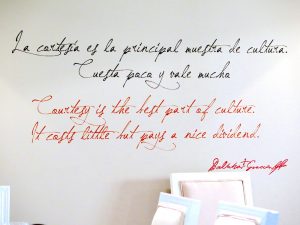 La cortesía es la principal muestra de cultura.
Cuesta poco y vale mucho
Courtesy is the best part of culture.
It costs little but pays a nice dividend.